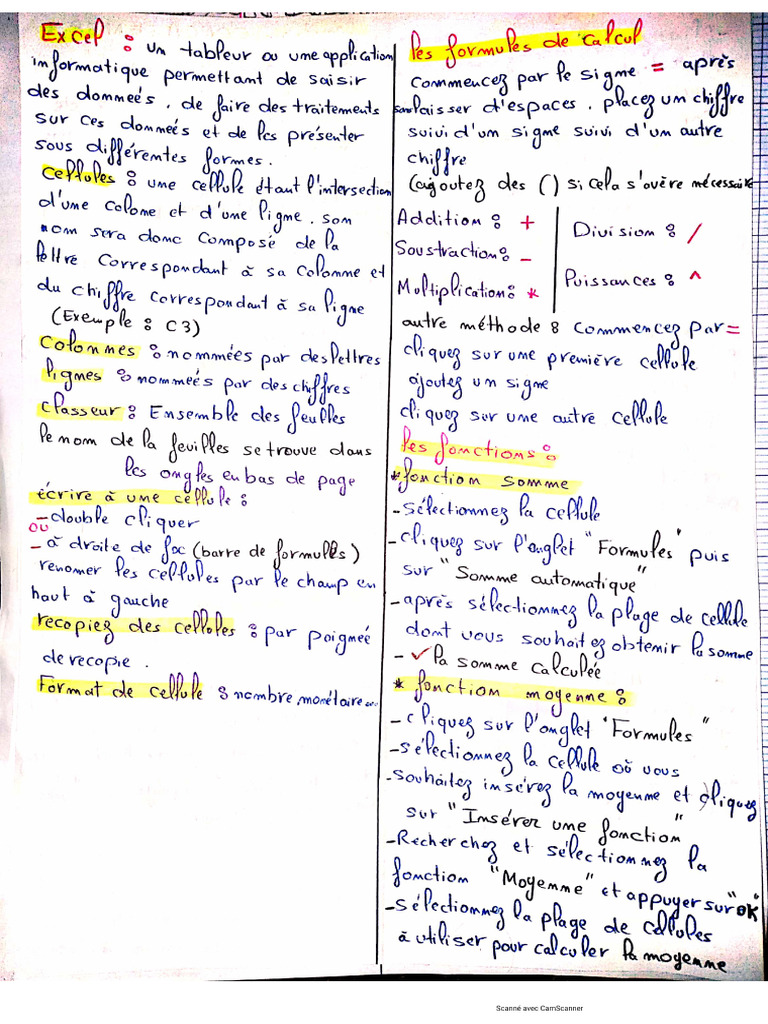 Excel : un tableur ou une application
informatique permettant de saisir
des donneés, de faire des traitements
sur ces donneés et de les présenter
sous différentes formes.
Cellules : une cellule étant l'intersection
d'une colone et d'une ligne. son
nom sera donc composé de la
lettre correspondant à sa colonne et
du chiffre correspondant à sa ligne
(Exemple : C3)
Colonnes : nommées par des lettres
lignes : nommeés par des chiffres
classeur : Ensemble des feulles
le nom de la feuilles se trouve dans
les ongles en bas de page
écrire à une cellule :
- double cliquer
ou
- à droite de fx (barre de formulēs)
renomer les cellules par le champ en
haut à gauche
recopiez des cellules : par poignée
de recopie.
Format de cellule : nombre monétaire ...
les formules de calcul
commencez par le signe = après
sans laisser d'espaces. placez un chiffre
suivi d'un signe suivi d'un autre
chiffre
(ajoutez des () si cela s'avère nécessaire
Addition : +
Soustraction : -
Multiplication : *
Division : /
Puissances : ^
autre méthode : commencez par =
cliquez sur une première cellule
ajoutez un signe
cliquez sur une autre cellule
les fonctions :
* fonction somme
- sélectionnez la cellule
- cliquez sur l'onglet "Formules" puis
sur "Somme automatique"
- après sélectionnez la plage de cellule
dont vous souhaitez obtenir la somme
- ✓ la somme calculée
* fonction moyenne :
- cliquez sur l'onglet "Formules"
- sélectionnez la cellule où vous
- souhaitez insérez la moyenne et cliquez
sur "Insérer une fonction"
- Recherchez et sélectionnez la
fonction "Moyenne" et appuyer sur "OK"
- sélectionnez la plage de cellules
à utiliser pour calculer la moyenne
Scanné avec CamScanner